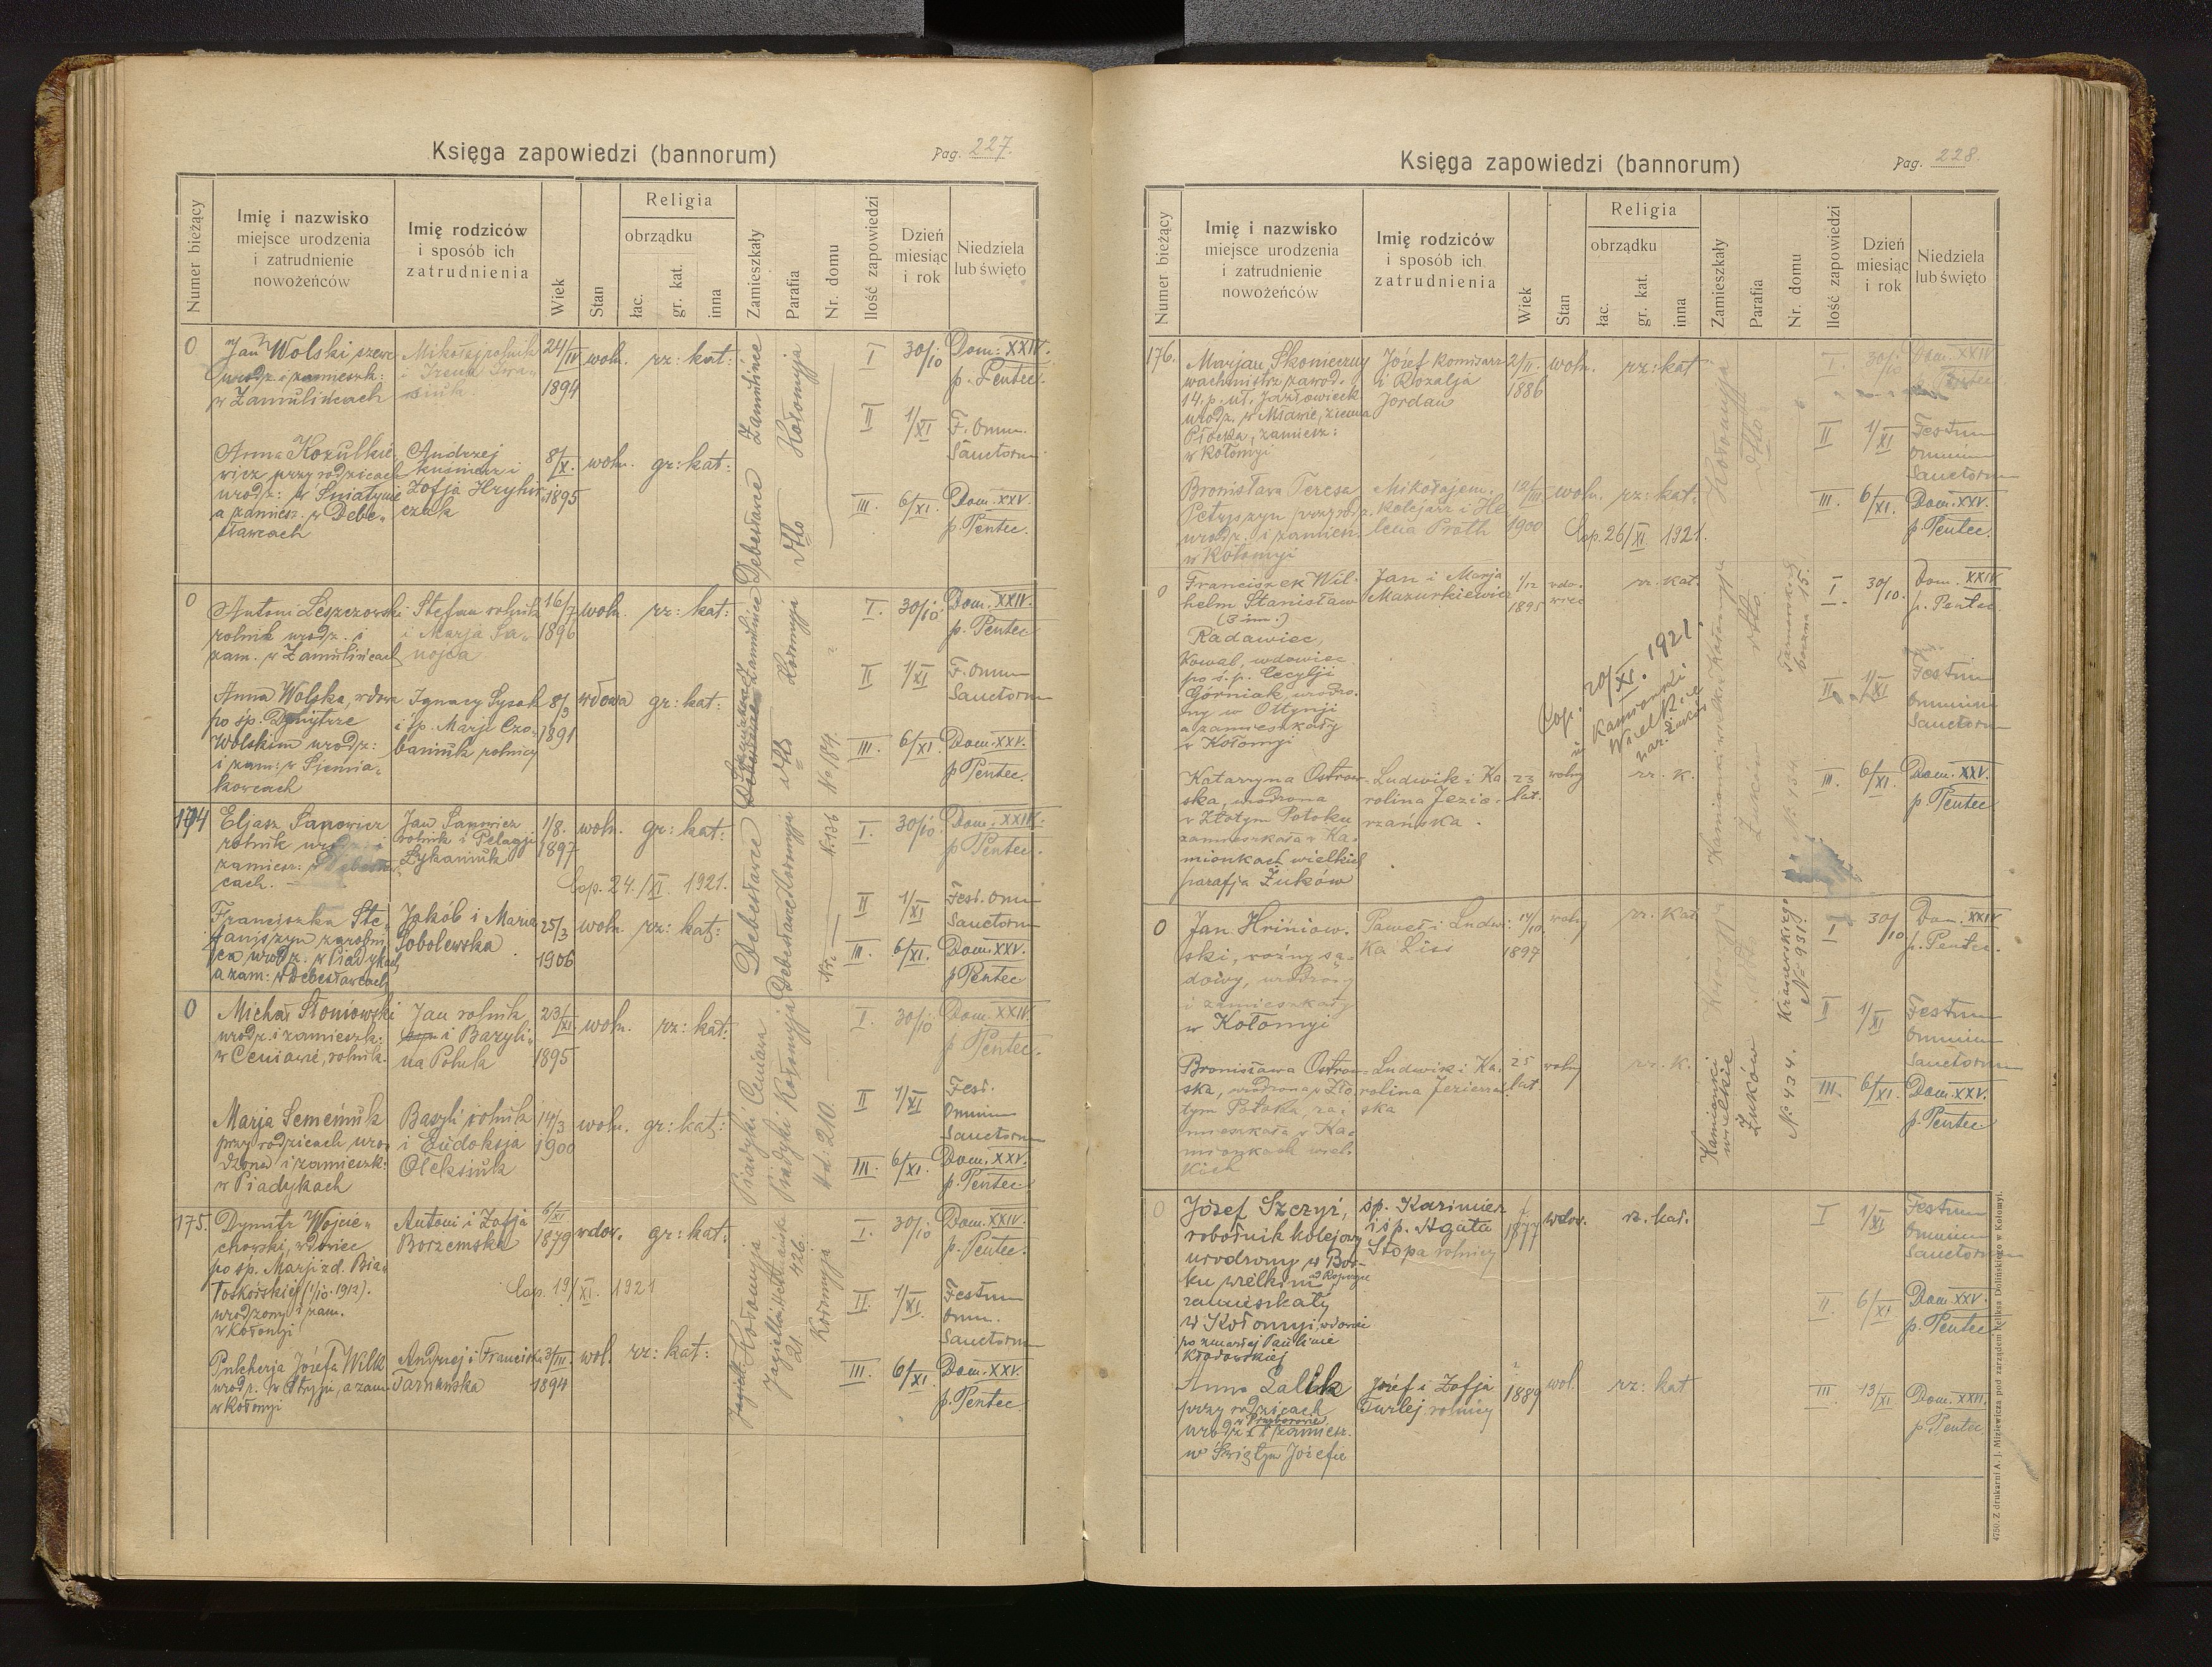 Księga zapowiedzi (bannorum)
Pag. 227.
Numer bieżący
Imię i nazwisko
miejsce urodzenia
i zatrudnienie
nowożeńców
Imię rodziców
i sposób ich
zatrudnienia
Wiek
Stan
Religia
obrządku
łac.
gr. kat.
inna
Zamieszkały
Parafia
Nr. domu
Ilość zapowiedzi
Dzień
miesiąc
i rok
Niedziela
lub święto
0
Jan Wolski szewc
urodz. i zamieszk:
w Zamulińcach
Mikołaj rolnik
i Irena
24/IV
1894
woln. rz: kat:
Anna Kozulkie
wicz przy rodzicach
urodz: w Śniatynie
a zamiesz. w Debe-
sławcach
Andrzej
kuśnierz i
Zofja
8/X.
1895
woln. gr: kat:
Zamulińce Kołomyja
Debesławce dtto
I 30/10 Dom: XXIV.
p. Pentec.
II 1/XI F. Omn.
Sanctorum
III. 6/XI. Dom. XXV.
p. Pentec.
0
Antoni Leszczowski
rolnik urodz. i
zam. w Zamulińcach
Stefan rolnik
i Marja
16/7
1896
woln. rz: kat:
Anna Wolska, wdowa
po śp. Dymytrze
Wolskim urodz:
i zam: w Siemia-
kowcach
Ignacy Sysak
i śp. Marji Czo-
baniuk rolnicy
8/3
1891
wdowa gr: kat:
Zamulińce Kołomyja
dtto No 184.
I. 30/10 Dom. XXIV.
p. Pentec
II 1/XI F. Omn
Sanctorum
III. 6/XI. Dom. XXV.
p. Pentec.
174
Eljasz Sanowicz
rolnik urodz. i
zamiesz.
cach.
Jan Sanowicz
rolnik i Pelagja
Łykaniuk
1/8.
1897
woln. gr: kat:
Cop. 24./XI. 1921.
Franciszka Ste-
faniszyn zarobni
ca urodz. w Piadykach
a zam: w Debesławcach
Jakób i Maria
Sobolewska
25/3
1906
woln. rz: kat:
Debesławce Kołomyja N. 136
Debesławce
I. 30/10 Dom. XXIV.
p Pentec.
II 1/XI Fest. Omn
Sanctorum
III. 6/XI. Dom. XXV.
p Pentec
0
Michał Słoniowski
urodz. i zamieszk:
w Ceniawie, rolnik.
Jan rolnik
i Bazyli-
na Potuk
23/XI
1895
woln. rz: kat:
Marja Semeńiuk
przy rodzicach, uro-
dzona i zamieszk:
w Piadykach
Bazyli rolnik
i Eudoksja
Oleksiuk
14/3
1900
woln. gr: kat:
Ceniawa Kołomyja
Piadyki Piadyki Nd: 210.
I. 30/10 Dom. XXIV.
p Pentec.
II 1/XI Fest.
Omnium
Sanctorum
III 6/XI. Dom. XXV.
p. Pentec.
175.
Dymitr Wojcie-
chowski, wdowiec
po śp. Marji zd. Bia-
łoskórskiej (1/10. 1912).
urodzony i zam.
w Kołomyi
Antoni i Zofja
Borzemska
6/XI
1879
wdow. gr: kat:
Cop. 19/XI. 1921
Pulcherja Józefa Wilk
urodz. w Stryju, a zam
w Kołomyi
Andrzej i Franciszka
Tarnawska
3/III
1894
wol. rz: kat:
Kołomyja
Jagiellońska
21 426.
Kołomyja
I. 30/10 Dom. XXIV.
p. Pentec.
II. 1/XI. Festum
Omn.
Sanctorum
III. 6/XI. Dom. XXV.
p. Pentec
Księga zapowiedzi (bannorum)
Pag. 228.
Numer bieżący
Imię i nazwisko
miejsce urodzenia
i zatrudnienie
nowożeńców
Imię rodziców
i sposób ich
zatrudnienia
Wiek
Stan
Religia
obrządku
łac.
gr. kat.
inna
Zamieszkały
Parafia
Nr. domu
Ilość zapowiedzi
Dzień
miesiąc
i rok
Niedziela
lub święto
176.
Marjan Skonieczny
wachmistrz zawod.
14. p. uł. Jazłowieck
urodz. w Mławie, ziemia
Płocka, zamiesz:
w Kołomyi
Józef komisarz
i Rozalja
Jordan
2/II.
1886
woln. rz: kat
Bronisława Teresa
Petryszyn przy rodz.
urodz. i zamiesz.
w Kołomyi
Mikołaj em.
kolejarz i He
lena Proth
12/III
1900
woln. rz: kat:
Cop. 26/XI 1921.
Kołomyja dtto
I. 30/10 Dom. XXIV
p. Pentec
II 1/XI Festum
Omnium
Sanctorum
III. 6/XI. Dom. XXV.
p. Pentec.
0
Franciszek Wil-
helm Stanisław
(3 im.)
Radawiec,
Kowal, wdowiec
po ś. p. Cecylji
Górniak, urodzo-
ny w Ottynji
a zamieszkały
w Kołomyi
Jan i Marja
Mazurkiewicz
1/12
1895
wdo-
wiec
rz. kat.
Cop. 20/XI. 1921
w Kamionki
Wielkie
Katarzyna Ostrow-
ska, urodzona
w Złotym Potoku
zamieszkała w Ka-
mionkach wielkich
parafja Żuków
Ludwik i Ka
rolina Jezio-
rzańska.
23
lat.
wolny rz. k.
Kołomyja dtto
Kamionki wielkie Żuków No 154.
I 30/10. Dom. XXIV
p. Pentec
II 1/XI Festum
Omnium
Sanctorum
III. 6/XI. Dom. XXV.
p. Pentec
0
Jan Hriniow-
ski, woźny są-
dowy, urodzony
i zamieszkały
w Kołomyi
Paweł i Ludw:
ka Liss
14/10
1897
wolny rz. kat
Bronisława Ostrow-
ska, urodzona w Zło
tym Potoku, za-
mieszkała w Ka-
mionkach wiel-
kich
Ludwik i Ka-
rolina Jezierzań
ska
25
lat.
wolny rz. k.
Kołomyja dtto Kraszewskiego
No 931.
Kamionki
wielkie
Żuków
No 434.
I 30/10 Dom. XXIV
p. Pentec.
II 1/XI Festum
Omnium
Sanctorum
III. 6/XI Dom. XXV.
p. Pentec
0
Józef Szczyś,
robotnik kolejowy
urodzony w Bor-
ku wielkim
zamieszkały
w Kołomyi, wdowiec
po zmarłej Paulinie
Kłodowskiej
śp. Kazimierz
i śp. Agata
Stopa rolnicy
1877
wdow. rz. kat.
Anna Salik
przy rodzicach
w Przyborowie
urodz. zamiesz.
w Świętym Józefie
Józef i Zofja
Turlej rolnicy
1889
wol. rz: kat
I 1/XI Festum
Omnium
Sanctorum
II. 6/XI Dom. XXV.
p. Pentec
III 13/XI Dom. XXVI.
p. Pentec
4750. Z drukarni A. J. Miziewicza pod zarządem Feliksa Dolińskiego w Kołomyi.